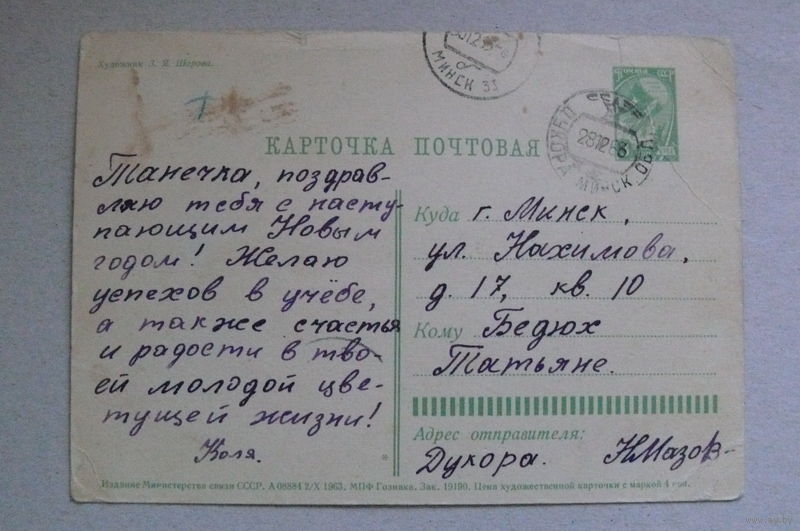 Художник З. Я. Шерова.
МИНСК 33
ПОЧТА СССР
28 12 63
МИНСК. ОБЛ.
КАРТОЧКА ПОЧТОВАЯ
Танечка, поздрав-
ляю тебя с насту-
пающим Новым
годом! Желаю
успехов в учёбе,
а также счастья
и радости в тво-
ей молодой цве-
тущей жизни!
Коля.
Куда г. Минск,
ул. Нахимова,
д. 17, кв. 10
Кому Бедюх
Татьяне.
Адрес отправителя:
Дукора. НМазов-
Издание Министерства связи СССР. А 08884 2/X 1963. МПФ Гознака. Зак. 19190. Цена художественной карточки с маркой 4 коп.